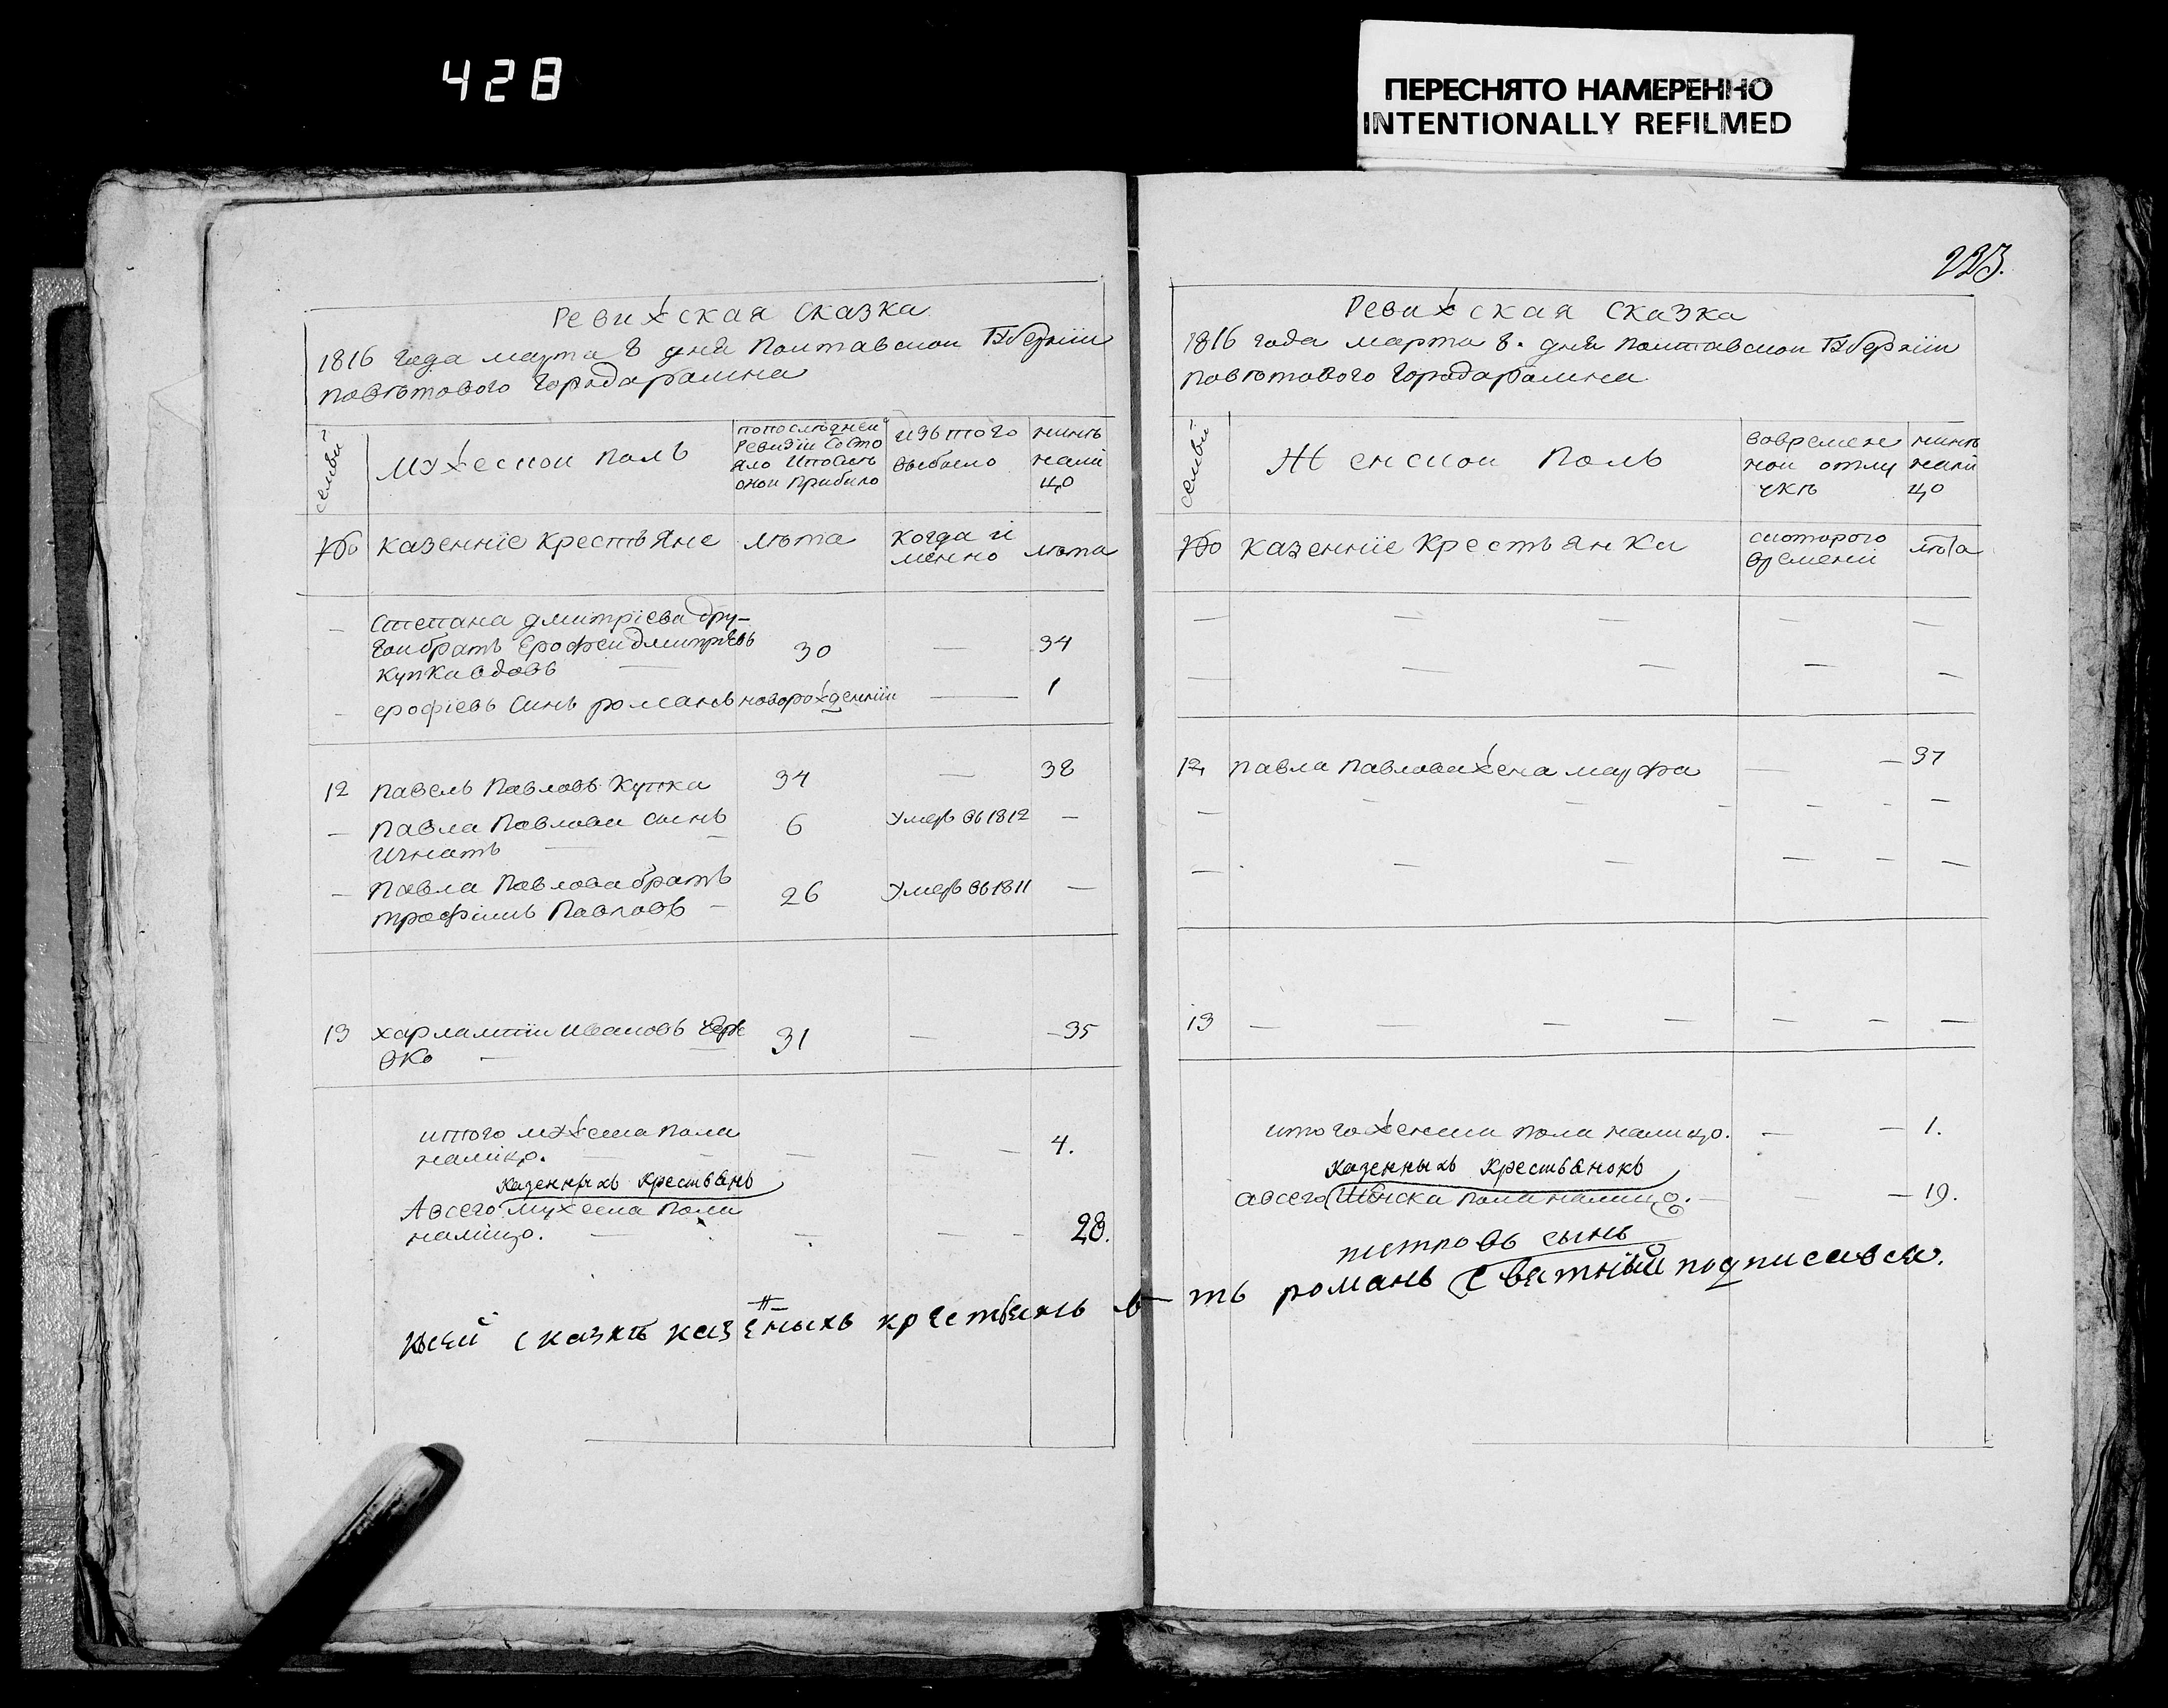 428
ПЕРЕСНЯТО НАМЕРЕННО
INTENTIONALLY REFILMED
Ревижская Сказка
1816 года марта 8 дня Полтавской Губернїи
повѣтового Города
семьи
мужескои Полъ
попослѣдней
Ревизїи Состо
яло Ипослѣ
оной Прибило
изьтого
выбыло
нинѣ
налi
цо
казеннїе Крестьяне
лѣта
когда и
менно
лѣта
Степана дмитрїева дру-
гои братъ Ерофеи дмитрїевъ
купка вдовъ
30
—
34
ерофїевъ Синъ романъ новорожденнїи
—
1
12
павелъ Павловъ Купка
34
—
38
— Павла Павлова синъ
Игнатъ
6
Умеръ въ 1812
—
— Павла Павлова братъ
трофїмъ Павловъ
26
Умеръ въ 1811
—
13
харлампїи Ивановъ
вко
31
—
35
итого мужеска Пола
налїцо.
4.
казенныхъ крестьянъ
Авсего мужеска Пола
налїцо.
28.
223.
Ревижская Сказка
1816 года марта 8. дня Полтавской Губернїи
повѣтового Города
семьи
Женскои Полъ
вовремен
нои отлу
чкѣ
нинѣ
налi
цо
казеннїе Крестьянки
скоторого
времени
лѣта
12
павла Павлова жена марфа
—
37
13
итого женска пола налицо.
1.
казенныхъ крестьянокъ
авсего женска пола налицо.
19.
петровъ сынъ
ксей сказкѣ казенныхъ крестьянъ ть романъ Святный подписався.